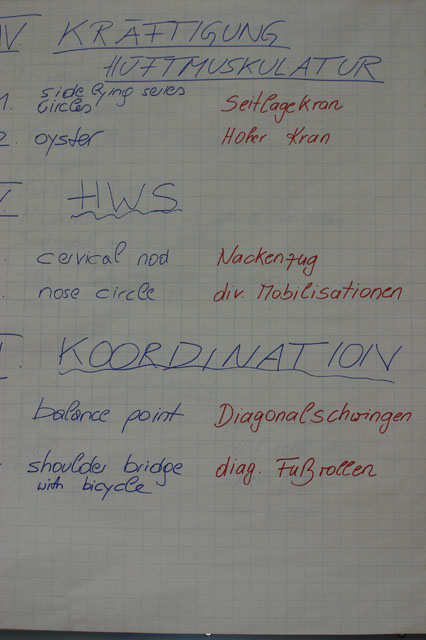 IV. KRÄFTIGUNG
HÜFTMUSKULATUR
1. side lying series Seitlagekran
circles
2. oyster Hoher Kran
V. HWS
cervical nod Nackenzug
nose circle div. Mobilisationen
I. KOORDINATION
balance point Diagonalschwingen
shoulder bridge diag. Fußrollen
with bicycle